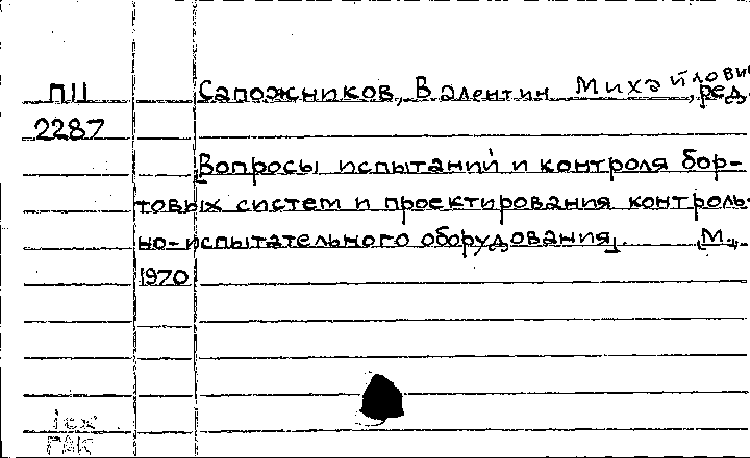 П11 Сапожников, Валентин Михайлович, ред.
2287
Вопросы испытаний и контроля бор-
товых систем и проектирования контроль-
но-испытательного оборудования. М.,
1970
1 сж
ГАК